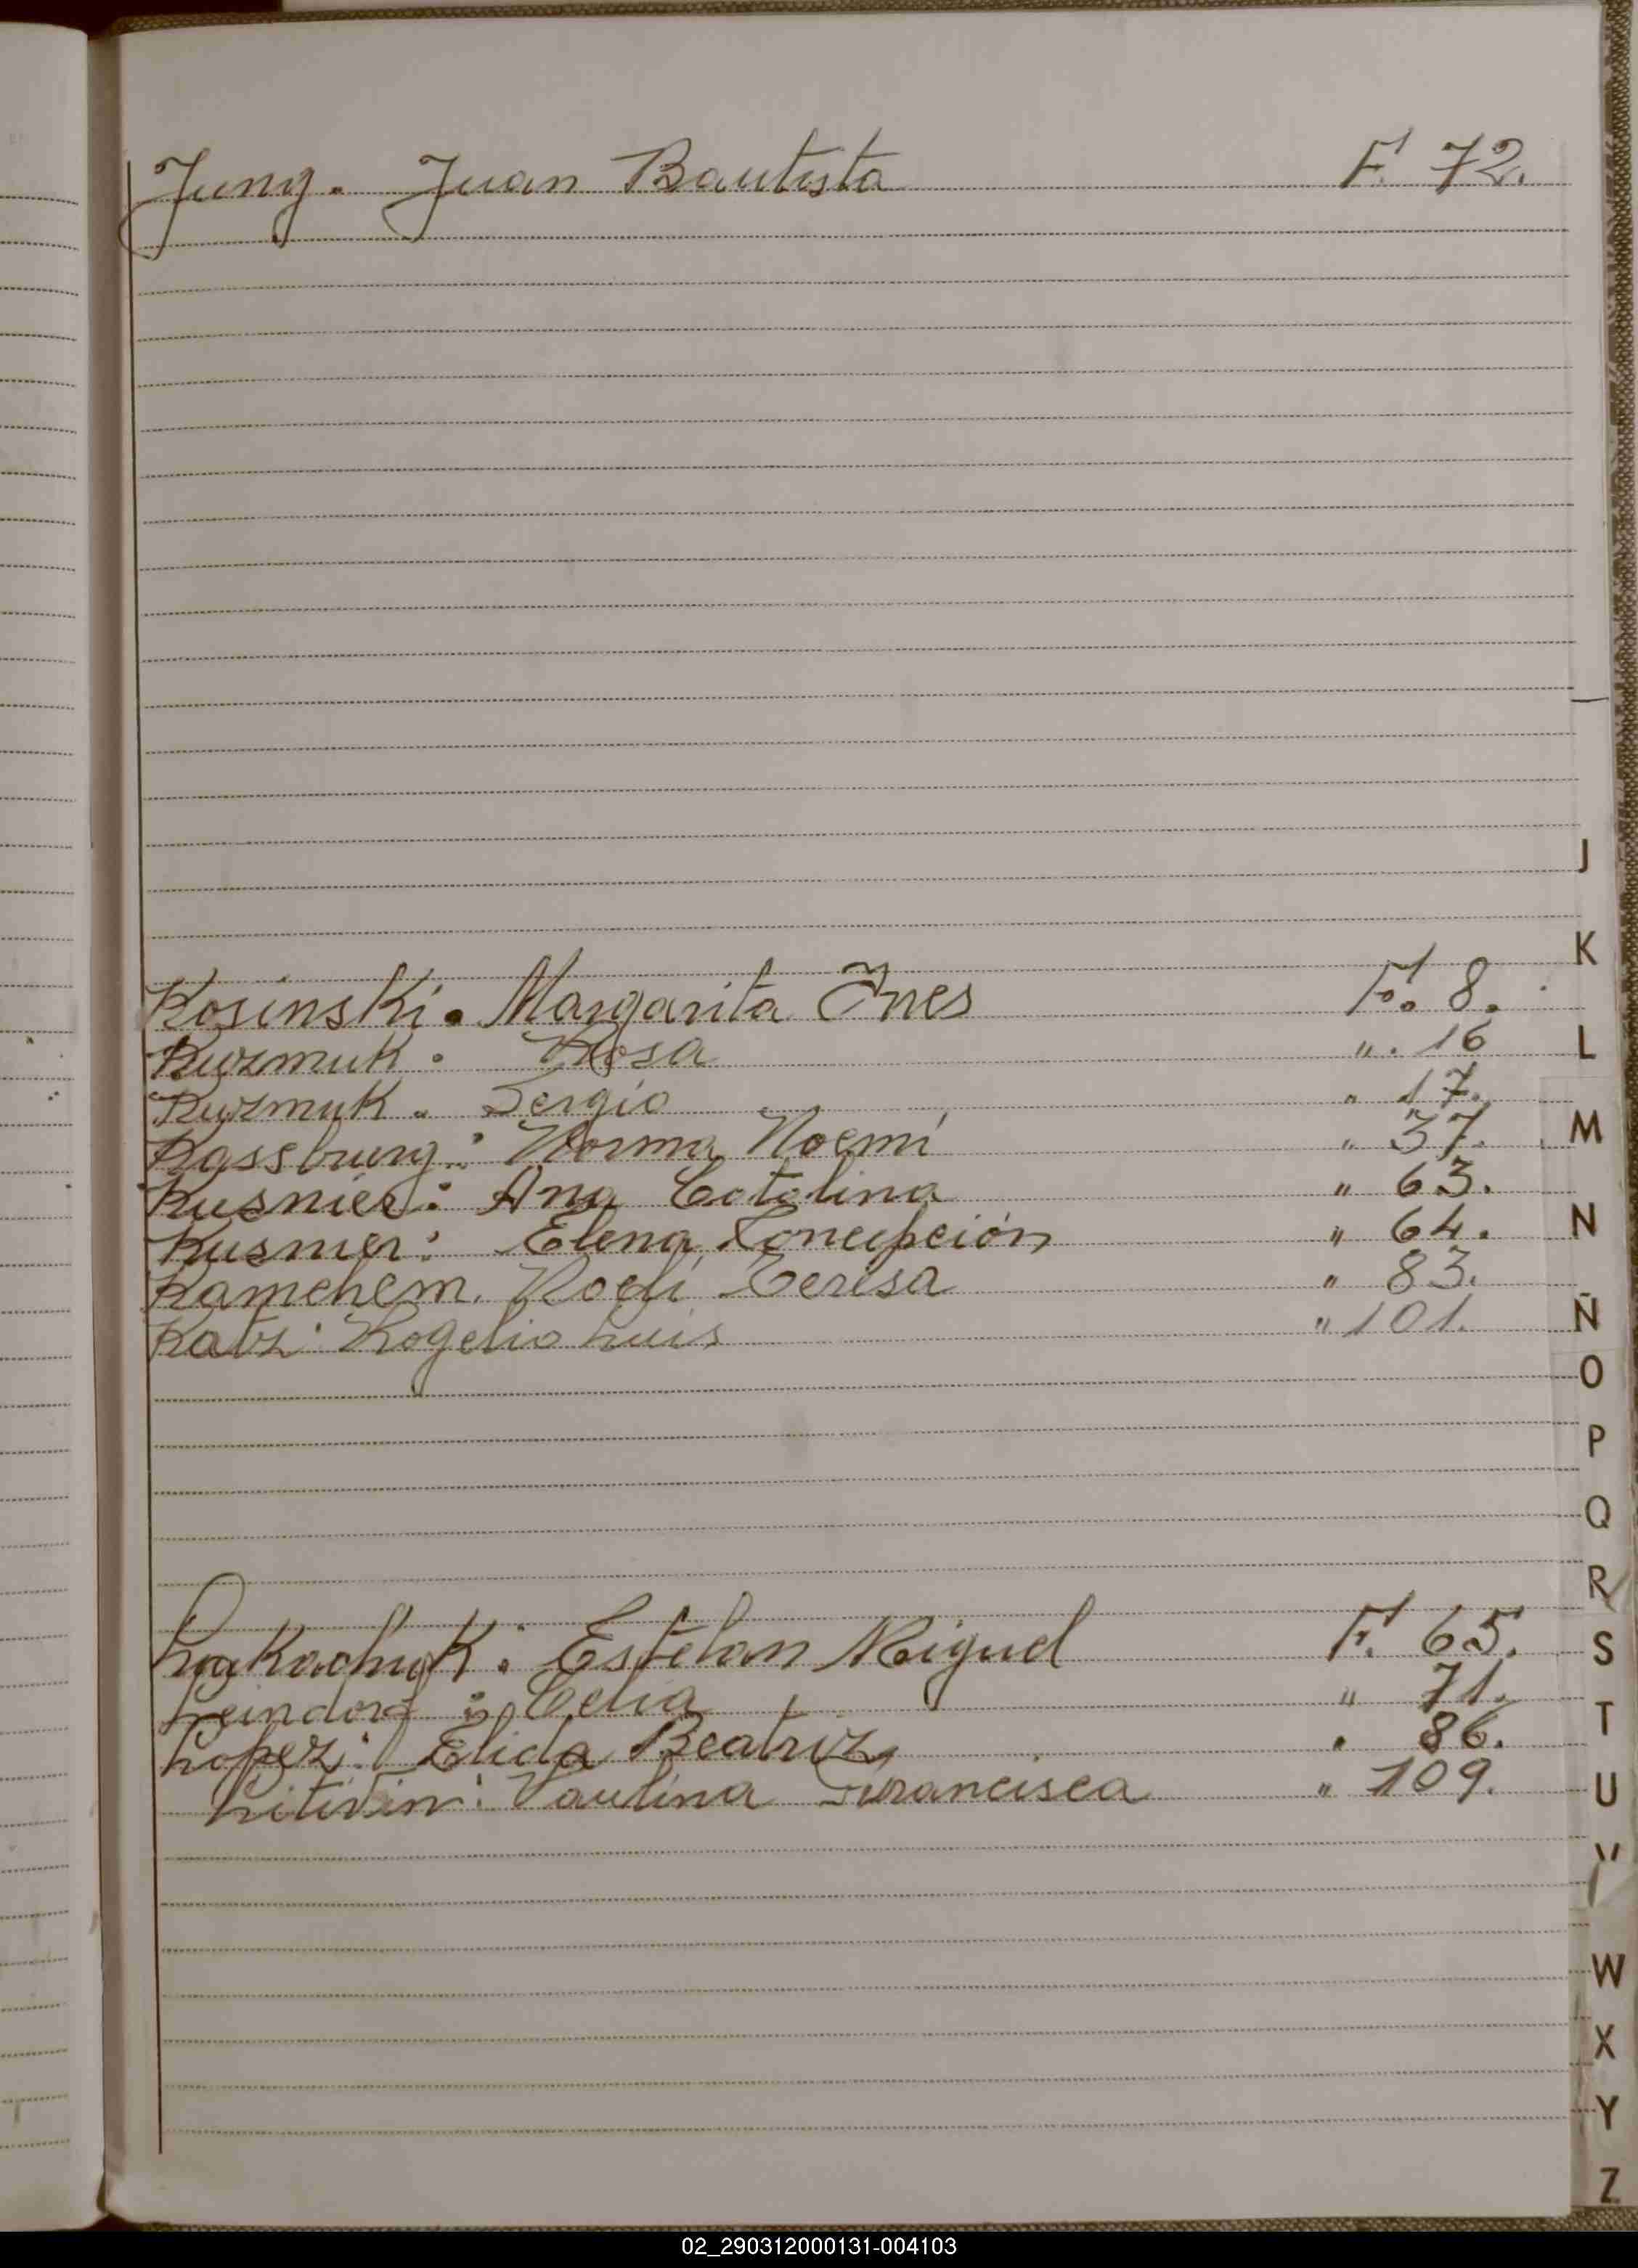 Jung. Juan Bautista F. 72.
J
K
Kosinski. Margarita Ines F. 8.
Kuzmuk. Rosa ". 16
L
Kuzmuk. Sergio " 17.
Kassburg: Norma Noemí " 37.
M
Kusnier: Ana Catalina " 63.
Kusnier: Elena Concepción " 64.
N
Teresa " 83.
Katz: Rogelio Luis " 101.
Ñ
O
P
Q
R
Esteban Miguel F. 65.
S
Leindorf: Celia " 71.
T
Lopez: Elida Beatriz " 86.
Litivin: Paulina Francisca " 109.
U
V
W
X
Y
Z
02_290312000131-004103